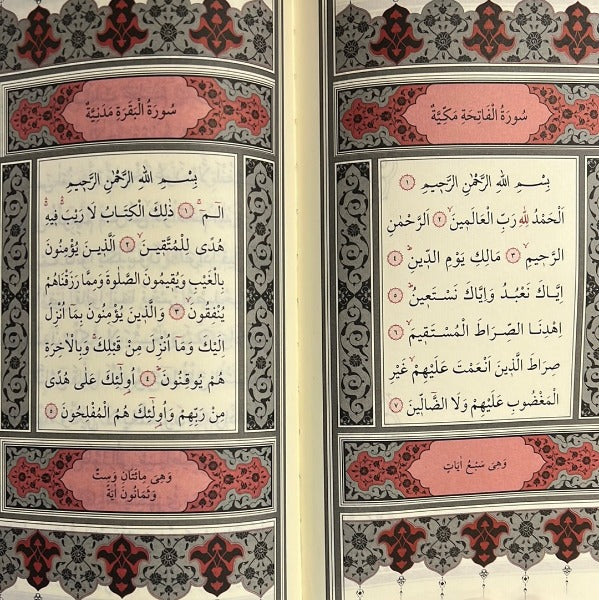 سُورَةُ الْفَاتِحَةِ مَكِّيَّةٌ
بِسْمِ اللّٰهِ الرَّحْمٰنِ الرَّحِيمِ ١
اَلْحَمْدُ لِلّٰهِ رَبِّ الْعَالَمِينَۙ ٢ اَلرَّحْمٰنِ
الرَّحِيمِۙ ٣ مَالِكِ يَوْمِ الدِّينِۜ ٤
اِيَّاكَ نَعْبُدُ وَاِيَّاكَ نَسْتَعِينُۜ ٥
اِهْدِنَا الصِّرَاطَ الْمُسْتَقِيمَۙ ٦
صِرَاطَ الَّذِينَ اَنْعَمْتَ عَلَيْهِمْۙ غَيْرِ
الْمَغْضُوبِ عَلَيْهِمْ وَلَا الضَّٓالِّينَ ٧
وَهِيَ سَبْعُ اٰيَاتٍ
سُورَةُ الْبَقَرَةِ مَدَنِيَّةٌ
بِسْمِ اللّٰهِ الرَّحْمٰنِ الرَّحِيمِ
الٓمٓۚ ١ ذٰلِكَ الْكِتَابُ لَا رَيْبَۚۛ فِيهِۚۛ
هُدًى لِلْمُتَّقِينَۙ ٢ اَلَّذِينَ يُؤْمِنُونَ
بِالْغَيْبِ وَيُقِيمُونَ الصَّلٰوةَ وَمِمَّا رَزَقْنَاهُمْ
يُنْفِقُونَۙ ٣ وَالَّذِينَ يُؤْمِنُونَ بِمَٓا اُنْزِلَ
اِلَيْكَ وَمَٓا اُنْزِلَ مِنْ قَبْلِكَۚ وَبِالْاٰخِرَةِ
هُمْ يُوقِنُونَۜ ٤ اُو۬لٰٓئِكَ عَلٰى هُدًى
مِنْ رَبِّهِمْ وَاُو۬لٰٓئِكَ هُمُ الْمُفْلِحُونَ ٥
وَهِيَ مِائَتَانِ وَسِتٌّ
وَثَمَانُونَ اٰيَةً